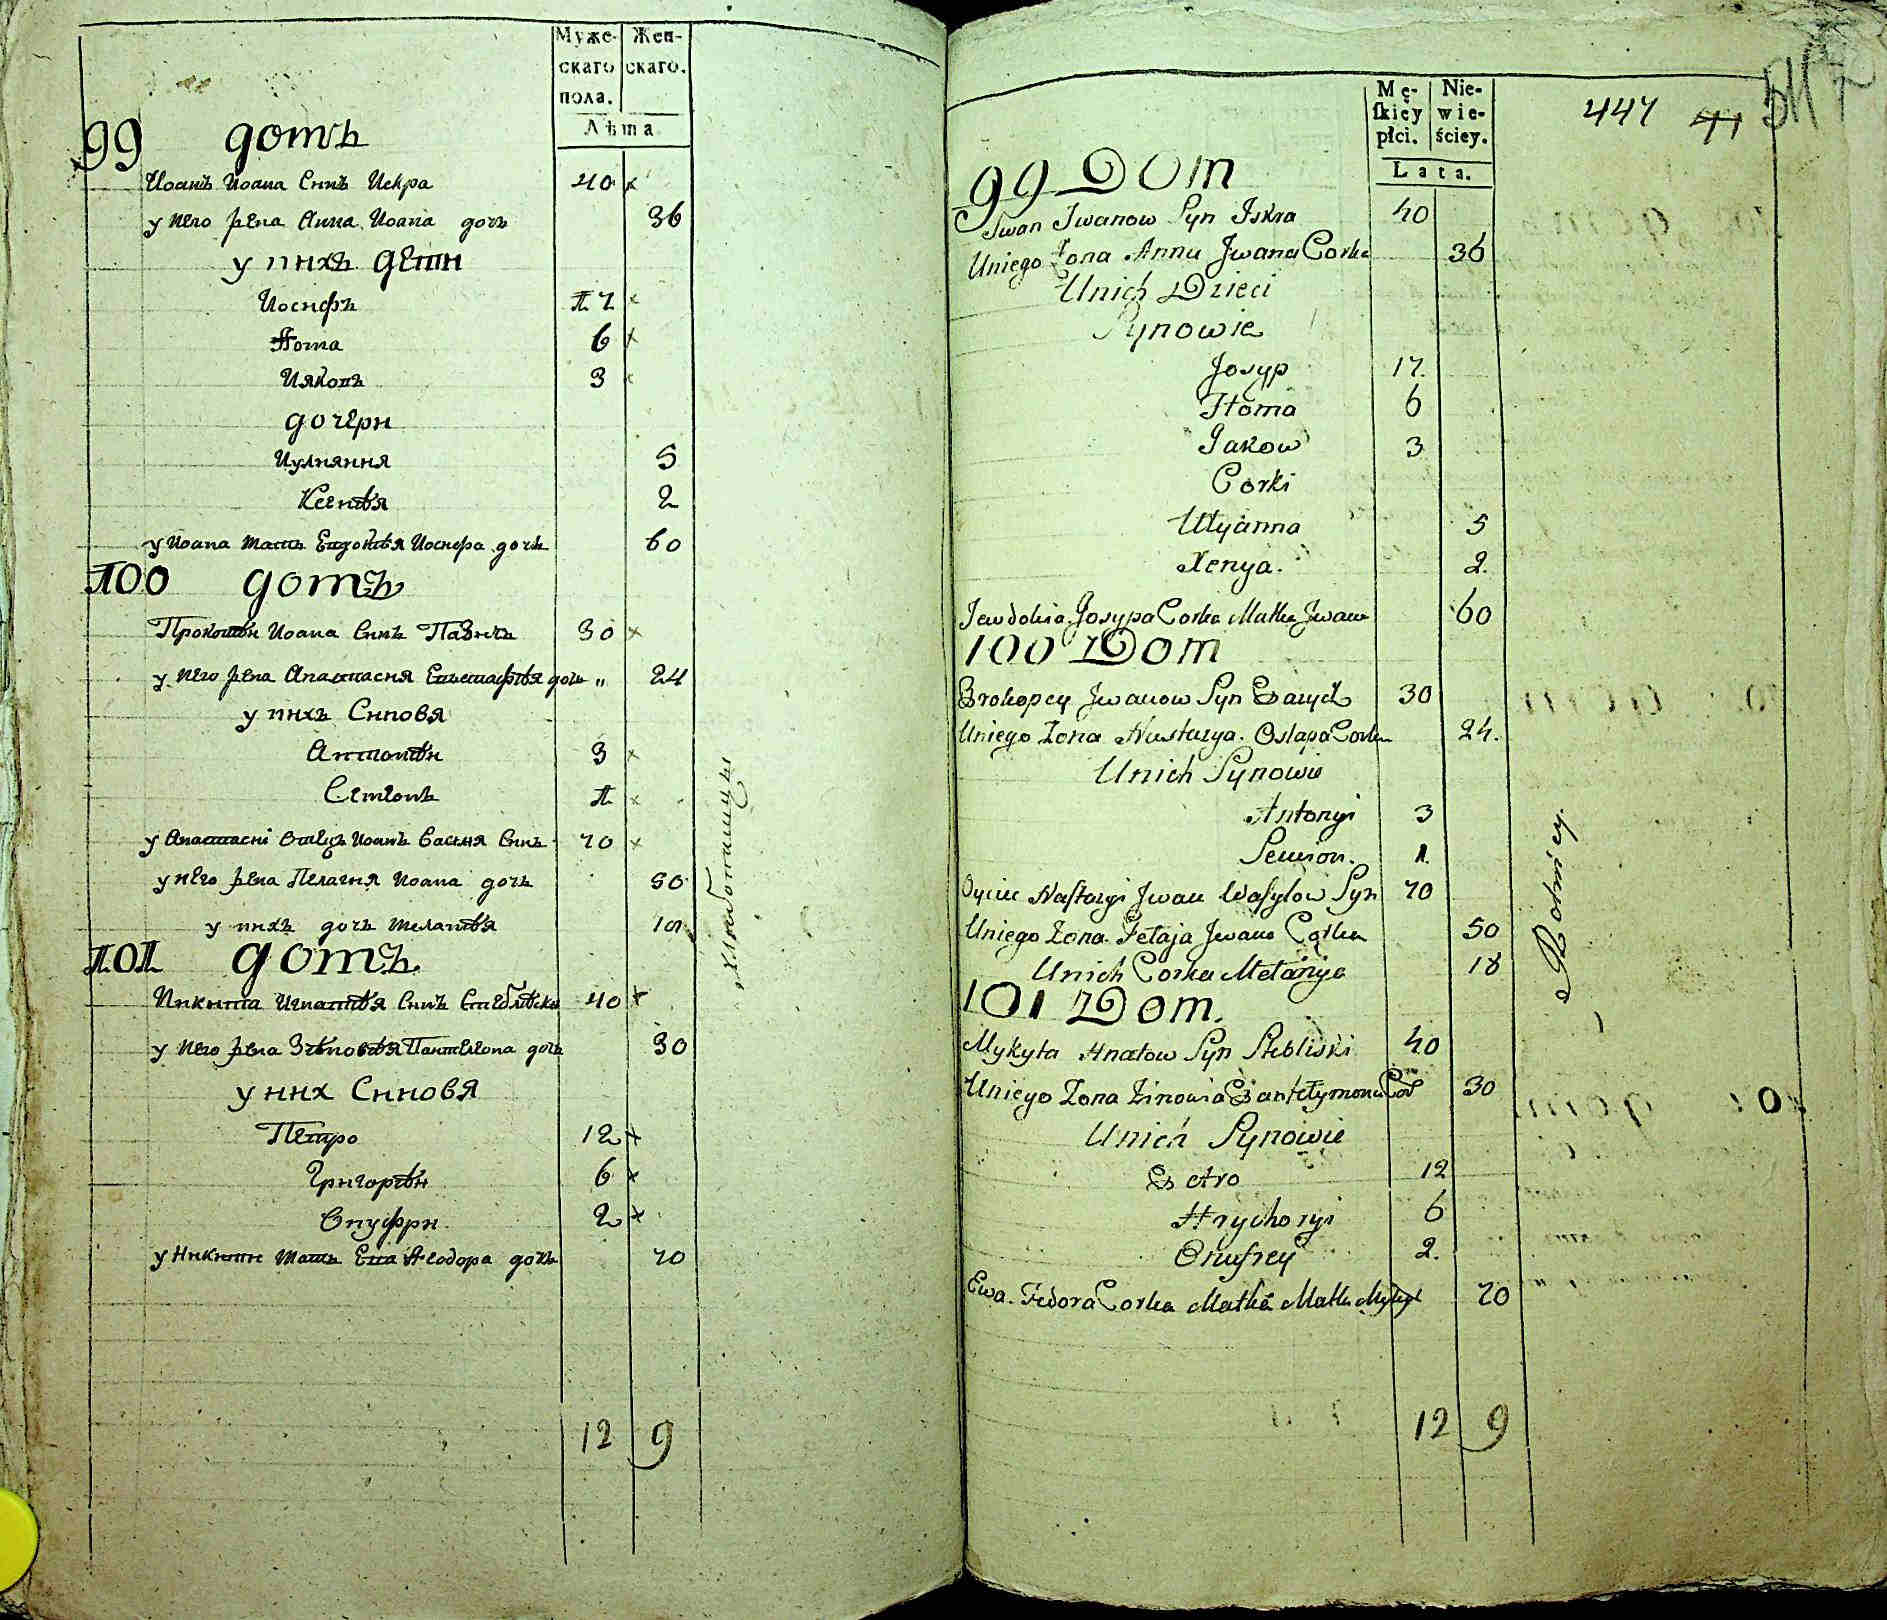 Муже-
скаго
пола.
Жен-
скаго.
Лѣта
99 домъ
Иоанъ Иоана Синъ Искра 40
у него жена Анна Иоана дочь 36
у нихъ дети
Иосифъ 17
Ѳома 6
Ияковъ 3
дочери
Иулияния 5
Ксенѣя 2
у Иоана мать Евдокѣя Иосифа дочь 60
100 домъ
Прокопѣи Иоана Синъ 30
у него жена Анастасия Евстафѣя дочь " 24
у нихъ Синовя
Антонѣи 3
Семенъ 1
у Анастасиі Отецъ Иоанъ Василя Синъ 70
у него жена Пелагия Иоана дочь 50
у нихъ дочь Меланѣя 18
101 домъ
Никита Игнатѣя Синъ 40
у него жена Зѣновѣя Пантелеона дочь 30
у них Синовя
Петро 12
Григорѣи 6
Онуфри 2
у Никити мать Ева Ѳеодора дочь 70
12 9
Хлѣбопашцы
Mę-
skiey
płci.
Nie-
wie-
ściey.
Lata.
447 41
99 Dom
Iwan Iwanow Syn Iskra 40
Uniego Zona Anna Iwana Corka 36
Unich Dzieci
Synowie
Josyp 17.
Homa 6
Jakow 3
Corki
Ulyanna 5
Xenya. 2.
Jewdokia Josypa Corka Matka Iwana 60
100 Dom
Prokopey Iwanow Syn 30
Uniego Zona Nastazya. Ostapa Corka 24.
Unich Synowie
Antonyi 3
Semion. 1.
Oyciec Nastazyi Iwan Wasylow Syn 70
Uniego Zona. Pełaja Iwana Corka 50
Unich Corka Mełanya 18
101 Dom.
Mykyta Hnatow Syn Stebliski 40
Uniego Zona Zinowia Pantełymona Cor 30
Unich Synowie
Petro 12
Hryhoryi 6
Onufrey 2.
Ewa. Fedora Corka Matka Matka Mykyt 70
12 9
Rolniey